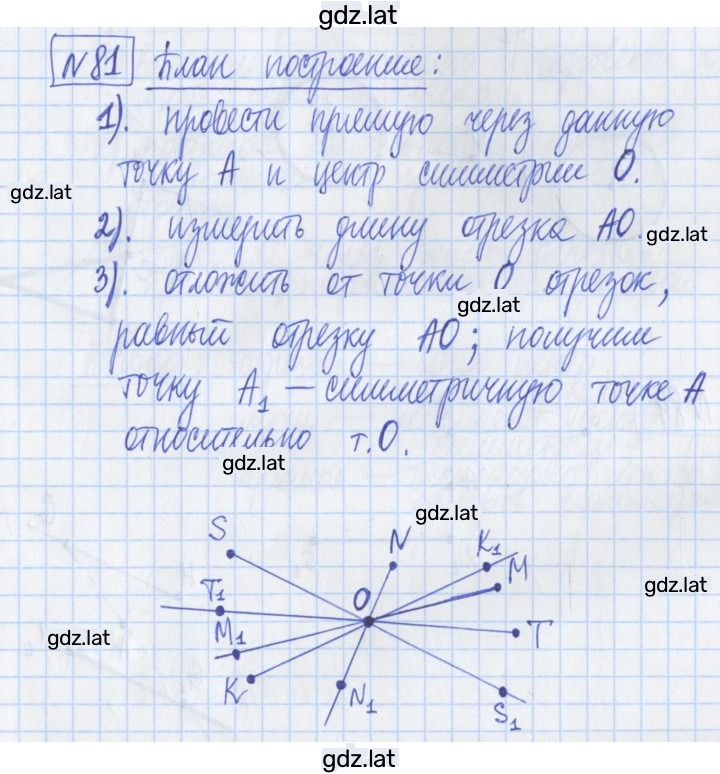 gdz.lat
N81 План построение:
1). провести прямую через данную
точку А и центр симметрии О.
gdz.lat
2). измерить длину отрезка АО.
gdz.lat
3). отложить от точки О отрезок,
gdz.lat
равный отрезку АО; получим
точку А1 — симметричную точке А
относительно т.О.
gdz.lat
gdz.lat
S
N
K1
M
gdz.lat
T1
O
gdz.lat
M1
T
K
N1
S1
gdz.lat